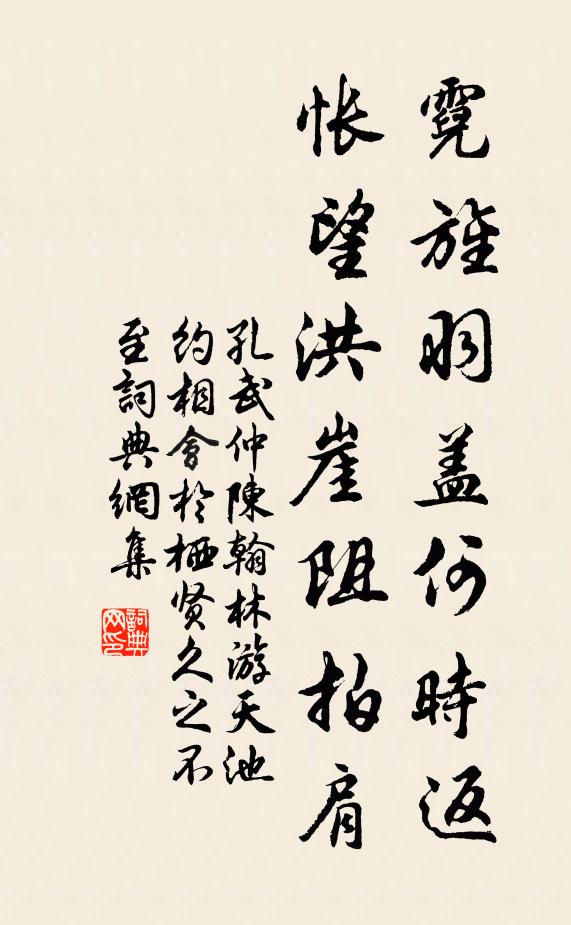 霓旌羽盖何時返
悵望洪崖阻拍肩
孔武仲陳翰林游天池
約相會於栖贤久之不
至詞典網集
詞典
网印